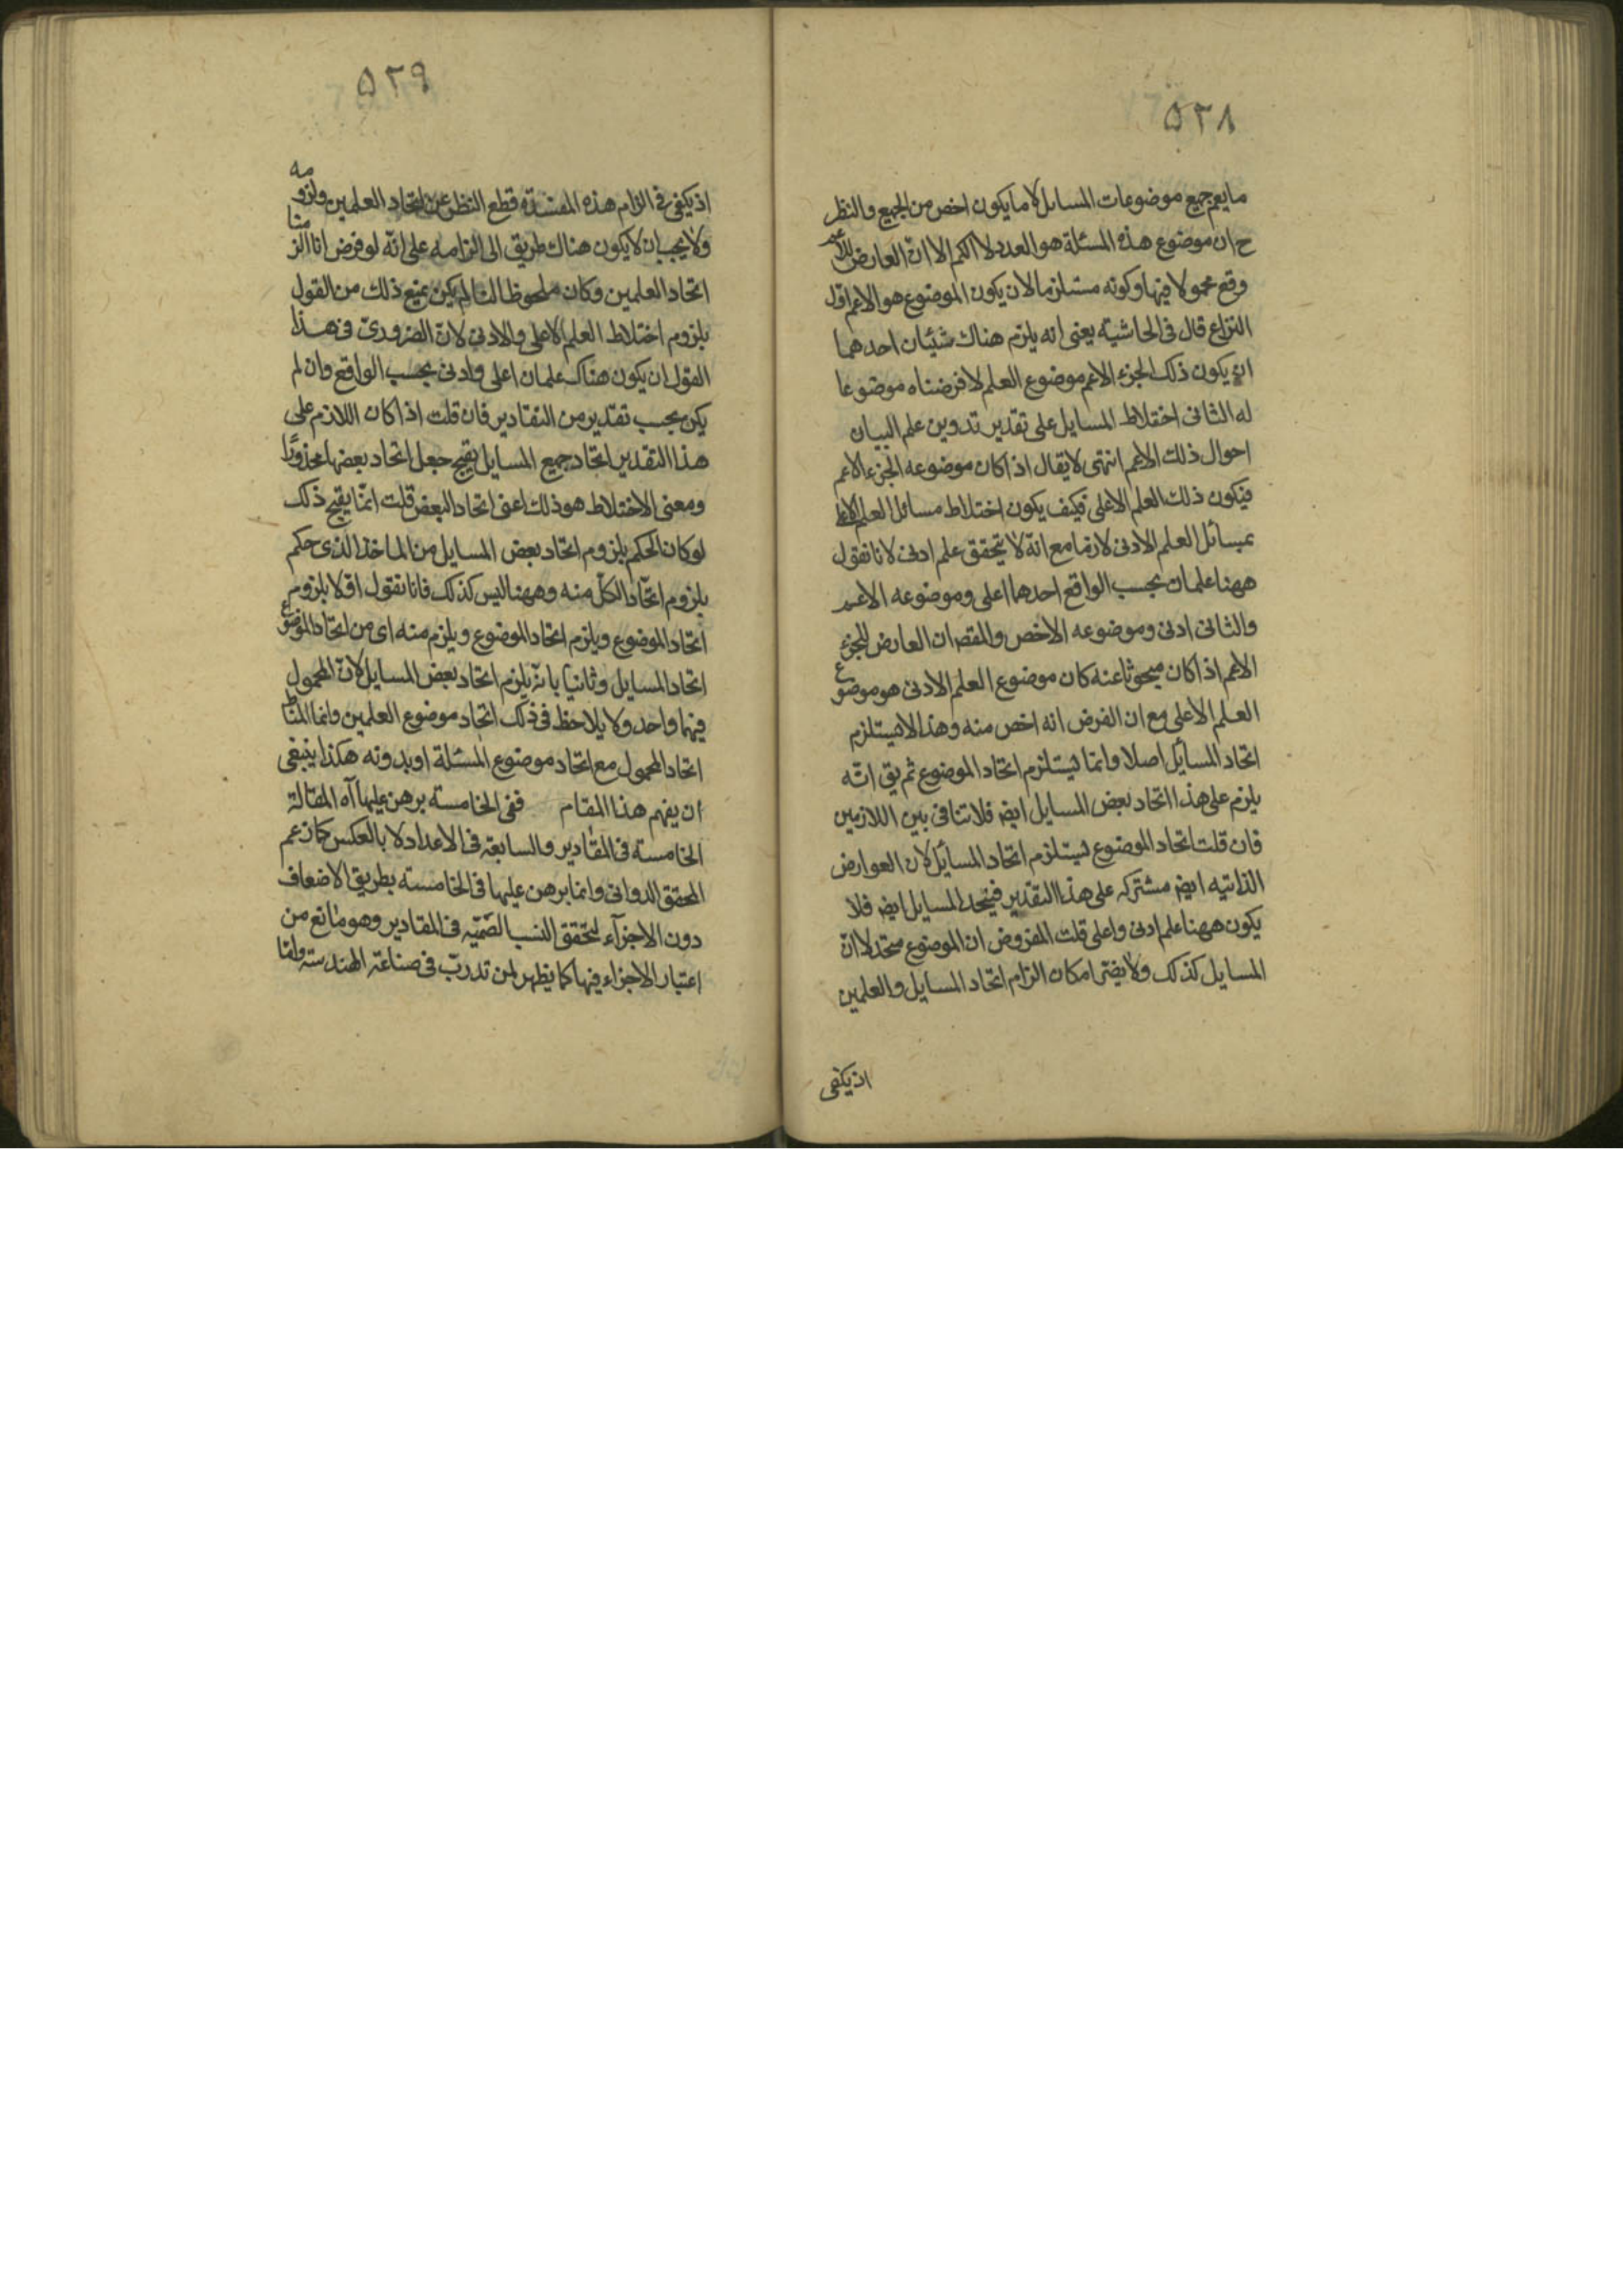 ۵۲۸
ما يعم جميع موضوعات المسائل لا ما يكون اخص من الجميع والنظر
ح ان موضوع هذه المسئلة هو العدد لا الكم الا ان العارض للاعم
وقع محمولا فيها وكونه مستلزما لان يكون الموضوع هو الاعم اول
النزاع قال فى الحاشية يعنى انه يلزم هناك شيئان احدهما
ان يكون ذلك الجزء الاعم موضوع العلم لا فرضناه موضوعا
له الثانى اختلاط المسايل على تقدير تدوين علم لبيان
احوال ذلك الاعم انتهى لا يقال اذا كان موضوعه الجزء الاعم
فيكون ذلك العلم الاعلى فكيف يكون اختلاط مسائل العلم الاعلى
بمسائل العلم الادنى لازما مع انه لا يتحقق علم ادنى لانا نقول
ههنا علمان بحسب الواقع احدهما اعلى وموضوعه الاعم
والثانى ادنى وموضوعه الاخص والمقصه ان العارض للجزء
الاعم اذا كان مبحوثا عنه كان موضوع العلم الادنى هو موضوع
العلم الاعلى مع ان الفرض انه اخص منه وهذا لا يستلزم
اتحاد المسائل اصلا وانما يستلزم اتحاد الموضوع ثم يق انه
يلزم على هذا اتحاد بعض المسايل ايضه فلا تنافى بين اللازمين
فان قلت اتحاد الموضوع يستلزم اتحاد المسائل لان العوارض
الذاتيه ايضه مشتركه على هذا التقدير فيتحد المسايل ايضه فلا
يكون ههنا علم ادنى واعلى قلت المفروض ان الموضوع متحد لا ان
المسايل كذلك ولا يضر امكان الزام اتحاد المسايل والعلمين
اذ يكفى
۵۲۹
اذ يكفى فى الزام هذه المفسدة قطع النظر عن اتحاد العلمين ولزومه
ولا يجب ان لا يكون هناك طريق الى الزامه على انه لو فرض انا الزمنا
اتحاد العلمين وكان ملحوظا لنا لم يكن يمنع ذلك من القول
بلزوم اختلاط العلم الاعلى والادنى لان الضرورى فى هذا
القول ان يكون هناك علمان اعلى وادنى بحسب الواقع وان لم
يكن بحسب تقدير من التقادير فان قلت اذا كان اللازم على
هذا التقدير اتحاد جميع المسايل يقبح جعل اتحاد بعضها محذورًا
ومعنى الاختلاط هو ذلك اعنى اتحاد البعض قلت انما يقبح ذلك
لو كان الحكم بلزوم اتحاد بعض المسايل من الماخذ الذى حكم
بلزوم اتحاد الكل منه وههنا ليس كذلك فانا نقول اولا بلزوم
اتحاد الموضوع ويلزم اتحاد الموضوع ويلزم منه اى من اتحاد الموضوع
اتحاد المسايل وثانيا بانه يلزم اتحاد بعض المسايل لان المحمول
فيها واحد ولا يلاحظ فى ذلك اتحاد موضوع العلمين وانما المناط
اتحاد المحمول مع اتحاد موضوع المسئلة او بدونه هكذا ينبغى
ان يفهم هذا المقام ففى الخامسته برهن عليها آه المقالة
الخامسته فى المقادير والسابعة فى الاعداد لا بالعكس كما زعم
المحقق الدوانى وانما برهن عليها فى الخامسته بطريق الاضعاف
دون الاجزآء لتحقق النسب الصميه فى المقادير وهو مانع من
اعتبار الاجزاء فيها كما يظهر لمن تدرب فى صناعة الهندسته واما